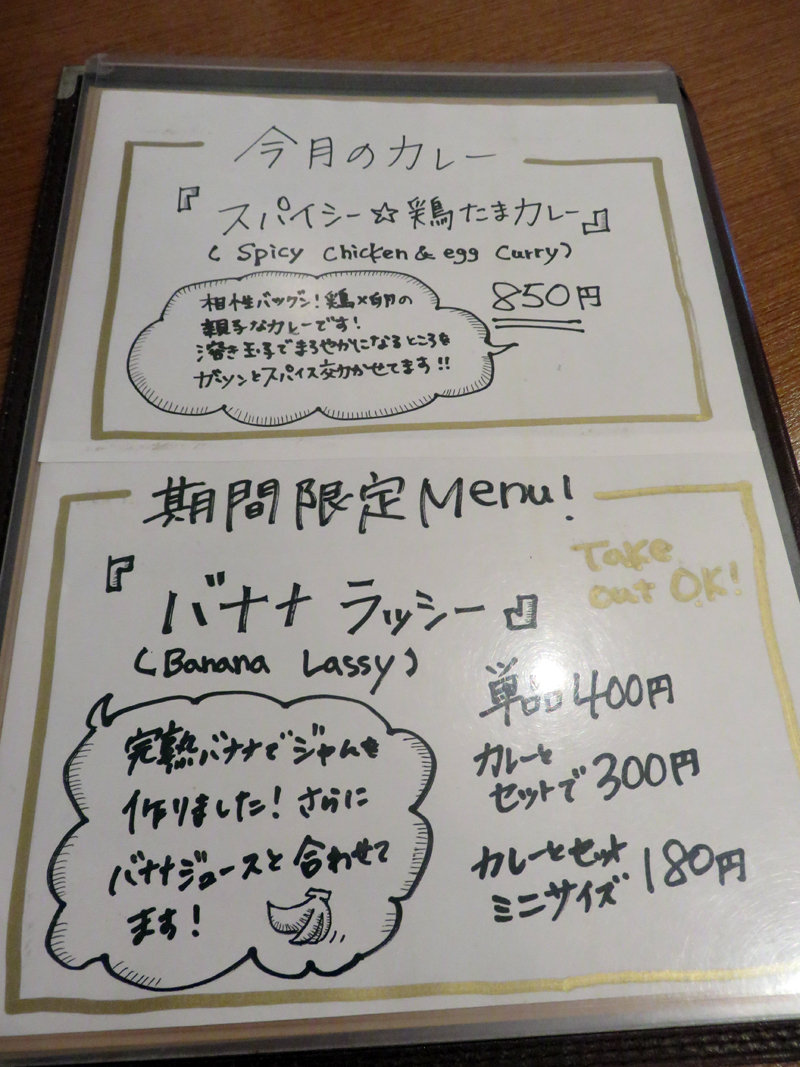 今月のカレー
『スパイシー☆鶏たまカレー』
(Spicy Chicken & egg Curry)
相性バツグン!鶏×卵の
親子なカレーです!
溶き玉子でまろやかになるところを
ガツンとスパイス効かせてます!!
850円
期間限定Menu!
Take
out OK!
『バナナ ラッシー』
(Banana Lassy)
完熟バナナでジャムを
作りました!さらに
バナナジュースと合わせて
ます!
単品400円
カレーと
セットで300円
カレーとセット
ミニサイズ180円